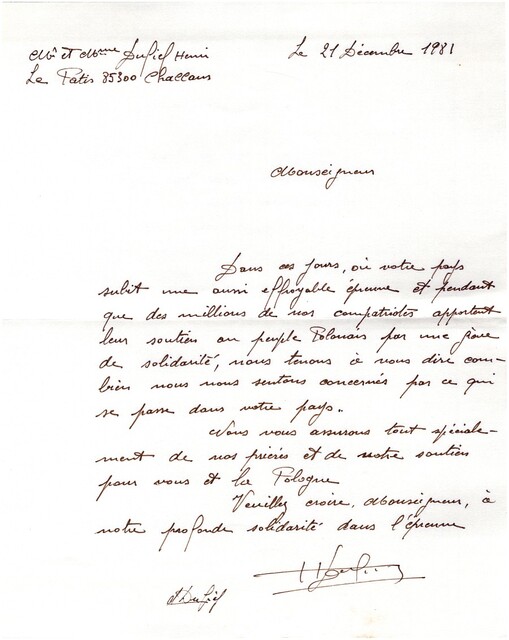 Mr et Mme Dufief Henri
Le 21 Décembre 1981
Le Pâtis 85300 Challans
Monseigneur
Dans ces jours, où votre pays
subit une aussi effroyable épreuve et pendant
que des millions de nos compatriotes apportent
leur soutien au peuple Polonais par une grève
de solidarité, nous tenons à vous dire com-
bien nous nous sentons concernés par ce qui
se passe dans votre pays..
Nous vous assurons tout spéciale-
ment de nos prières et de notre soutien
pour vous et la Pologne
Veuillez croire, Monseigneur, à
notre profonde solidarité dans l'épreuve